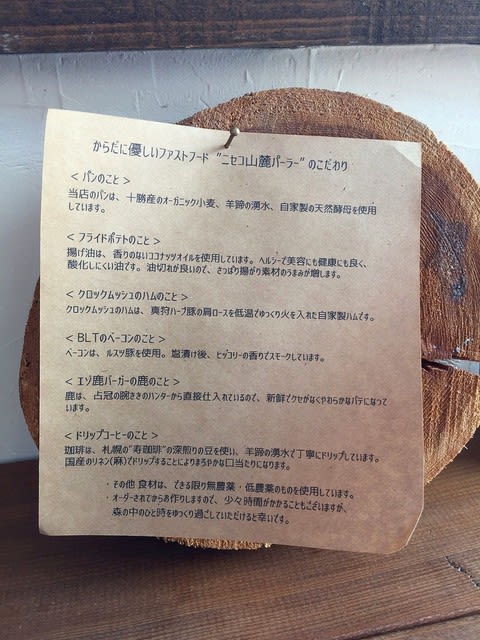 からだに優しいファストフード “ニセコ山麓パーラー” のこだわり
＜パンのこと＞
当店のパンは、十勝産のオーガニック小麦、羊蹄の湧水、自家製の天然酵母を使用
しています。
＜フライドポテトのこと＞
揚げ油は、香りのないココナッツオイルを使用しています。ヘルシーで美容にも健康にも良く、
酸化しにくい油です。油切れが良いので、さっぱり揚がり素材のうまみが増します。
＜クロックムッシュのハムのこと＞
クロックムッシュのハムは、真狩ハーブ豚の肩ロースを低温でゆっくり火を入れた自家製ハムです。
＜BLTのベーコンのこと＞
ベーコンは、ルスツ豚を使用。塩漬け後、ヒッコリーの香りでスモークしています。
＜エゾ鹿バーガーの鹿のこと＞
鹿は、占冠の腕ききのハンターから直接仕入れているので、新鮮でクセがなくやわらかなパテになって
います。
＜ドリップコーヒーのこと＞
珈琲は、札幌の“寿珈琲”の深煎りの豆を使い、羊蹄の湧水で丁寧にドリップしています。
国産のリネン(麻)でドリップすることによりまろやかな口当たりになります。
・その他 食材は、できる限り無農薬・低農薬のものを使用しています。
・オーダーされてからお作りしますので、少々時間がかかることもございますが、
森の中のひと時をゆっくり過ごしていただけると幸いです。